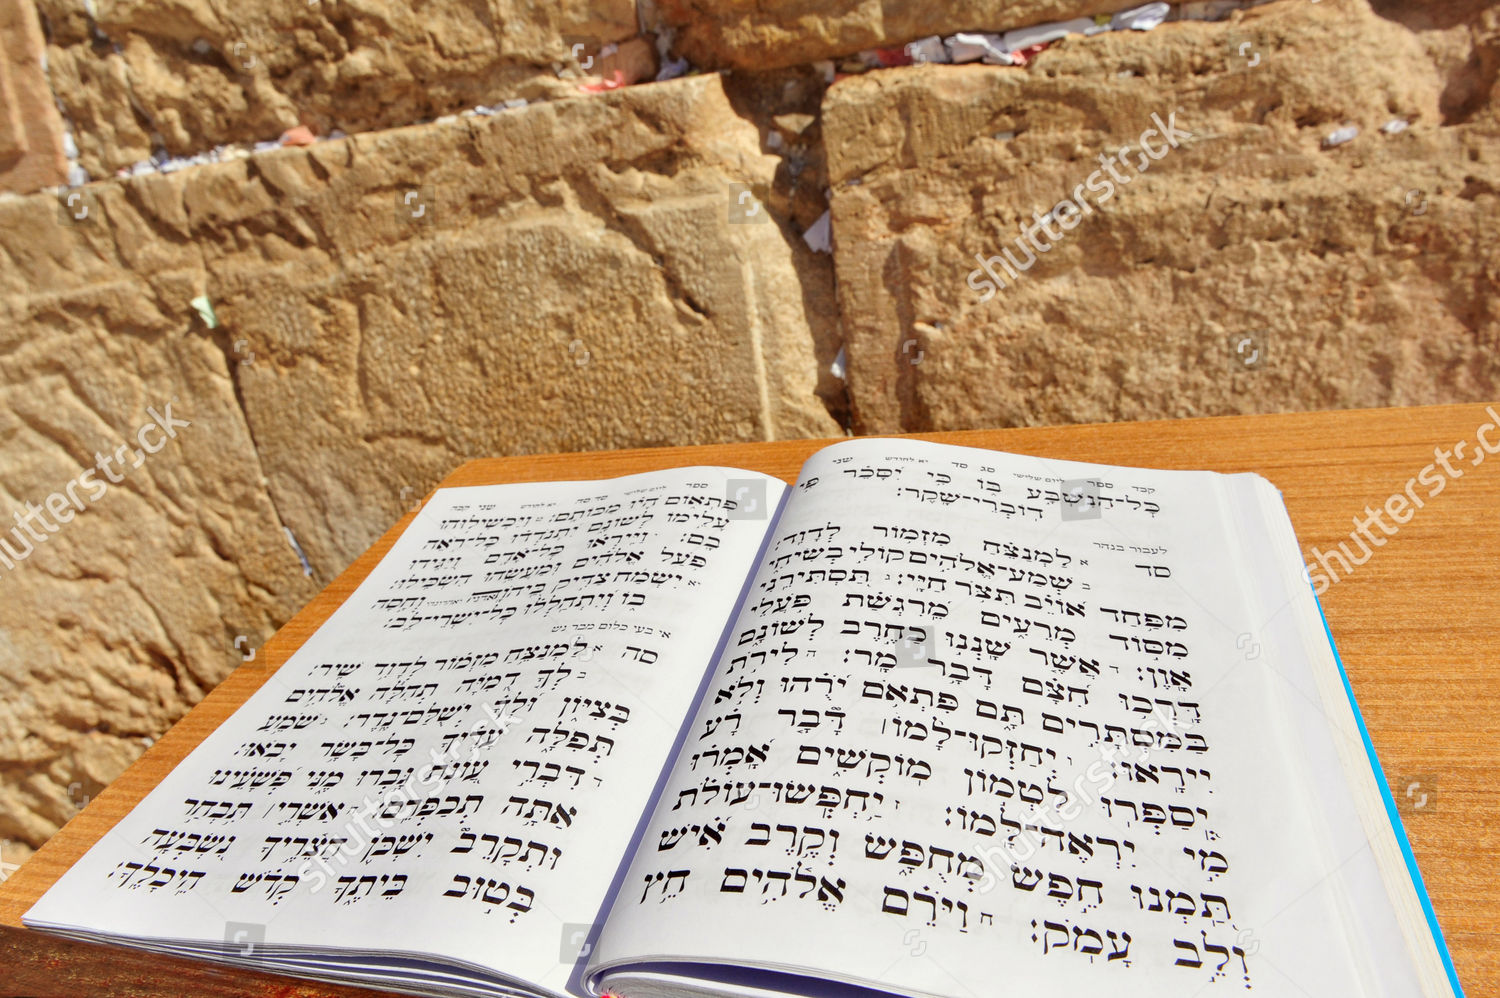 קבד ספר ליום שלישי סג סד יא לחודש שני
כָּל־הַנִּשְׁבָּע בּוֹ כִּי יִסָּכֵר פִּי
דוֹבְרֵי־שָׁקֶר׃
לעבור בנהר
סד א לַמְנַצֵּחַ מִזְמוֹר לְדָוִד׃
ב שְׁמַע־אֱלֹהִים קוֹלִי בְשִׂיחִי
מִפַּחַד אוֹיֵב תִּצֹּר חַיָּי׃ ג תַּסְתִּירֵנִי
מִסּוֹד מְרֵעִים מֵרִגְשַׁת פֹּעֲלֵי
אָוֶן׃ ד אֲשֶׁר שָׁנְנוּ כַחֶרֶב לְשׁוֹנָם
דָּרְכוּ חִצָּם דָּבָר מָר׃ ה לִירֹת
בַּמִּסְתָּרִים תָּם פִּתְאֹם יֹרֻהוּ וְלֹא
יִירָאוּ׃ ו יְחַזְּקוּ־לָמוֹ׀ דָּבָר רָע
יְסַפְּרוּ לִטְמוֹן מוֹקְשִׁים אָמְרוּ
מִי יִרְאֶה־לָּמוֹ׃ ז יַחְפְּשׂוּ־עוֹלֹת
תַּמְנוּ חֵפֶשׂ מְחֻפָּשׂ וְקֶרֶב אִישׁ
וְלֵב עָמֹק׃ ח וַיֹּרֵם אֱלֹהִים חֵץ
ספר ליום שלישי סד סה יא לחודש שני
פִּתְאוֹם הָיוּ מַכּוֹתָם׃ ט וַיַּכְשִׁילוּהוּ
עָלֵימוֹ לְשׁוֹנָם יִתְנֹדְדוּ כָּל־רֹאֵה
בָם׃ י וַיִּירְאוּ כָּל־אָדָם וַיַּגִּידוּ
פֹּעַל אֱלֹהִים וּמַעֲשֵׂהוּ הִשְׂכִּילוּ׃
יא יִשְׂמַח צַדִּיק בַּיהוָה וְחָסָה
בוֹ וְיִתְהַלְלוּ כָּל־יִשְׁרֵי־לֵב׃
אי בעי כלום מבר נש
סה א לַמְנַצֵּחַ מִזְמוֹר לְדָוִד שִׁיר׃
ב לְךָ דֻמִיָּה תְהִלָּה אֱלֹהִים
בְּצִיּוֹן וּלְךָ יְשֻׁלַּם־נֶדֶר׃ ג שֹׁמֵעַ
תְּפִלָּה עָדֶיךָ כָּל־בָּשָׂר יָבֹאוּ׃
ד דִּבְרֵי עֲוֺנֹת גָּבְרוּ מֶנִּי פְּשָׁעֵינוּ
אַתָּה תְכַפְּרֵם׃ ה אַשְׁרֵי׀ תִּבְחַר
וּתְקָרֵב יִשְׁכֹּן חֲצֵרֶיךָ נִשְׂבְּעָה
בְּטוּב בֵּיתֶךָ קְדֹשׁ הֵיכָלֶךָ׃